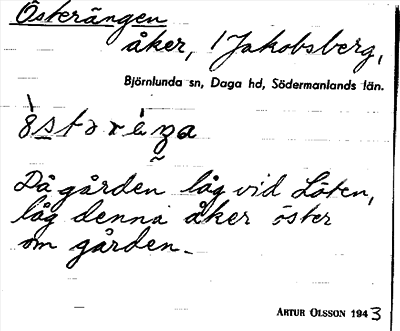 Österängen
åker, / Jakobsberg,
Björnlunda sn, Daga hd, Södermanlands län.
Då gården låg vid Löten,
låg denna åker öster
om gården.
ARTUR OLSSON 1943